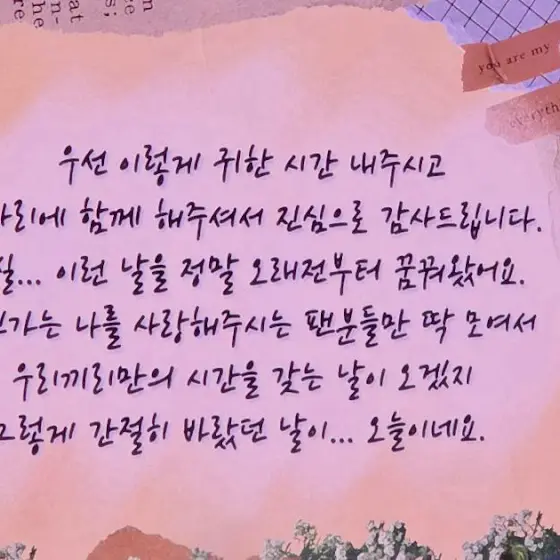 you are my
everyth
우선 이렇게 귀한 시간 내주시고
자리에 함께 해주셔서 진심으로 감사드립니다.
실... 이런 날을 정말 오래전부터 꿈꿔왔어요.
가는 나를 사랑해주시는 팬분들만 딱 모여서
우리끼리만의 시간을 갖는 날이 오겠지
그렇게 간절히 바랐던 날이... 오늘이네요.